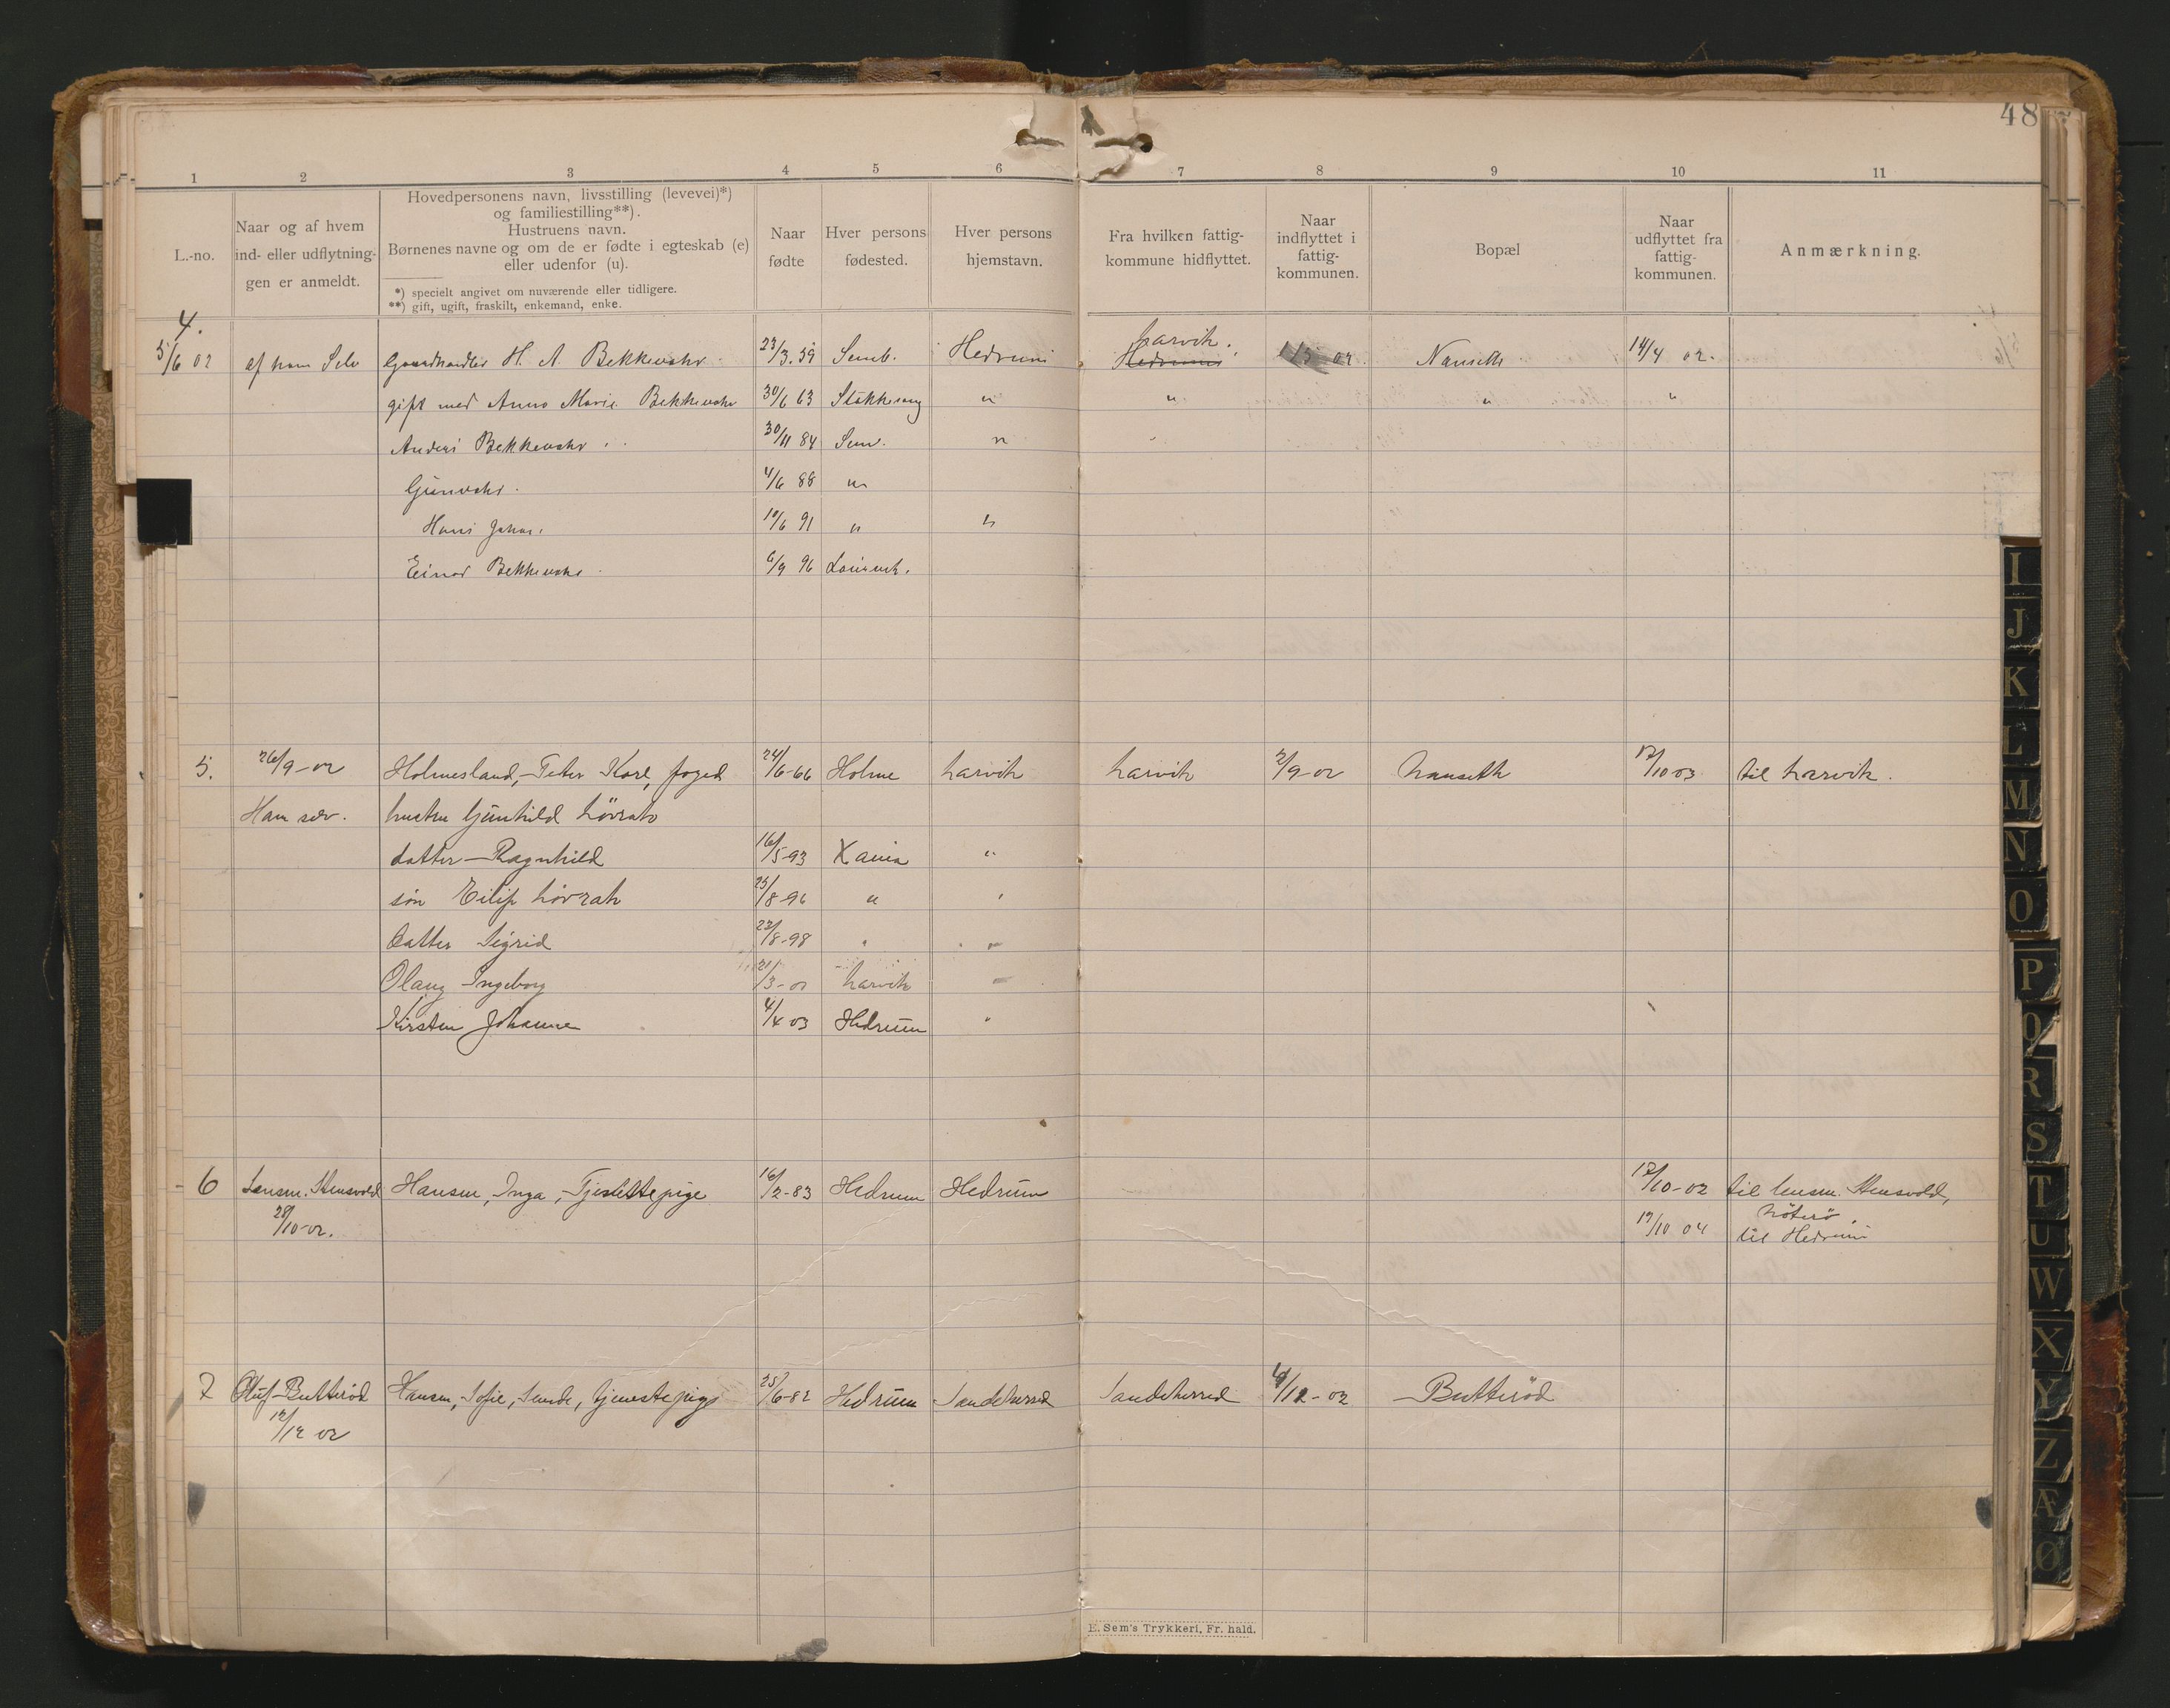 48
1 2 3 4 5 6 7 8 9 10 11
L.-no.
Naar og af hvem
ind- eller udflytnin-
gen er anmeldt.
Hovedpersonens navn, livsstilling (levevei)*)
og familiestilling**).
Hustruens navn.
Børnenes navne og om de er fødte i egteskab (e)
eller udenfor (u).
*) specielt angivet om nuværende eller tidligere.
**) gift, ugift, fraskilt, enkemand, enke.
Naar
fødte
Hver persons
fødested.
Hver persons
hjemstavn.
Fra hvilken fattig-
kommune hidflyttet.
Naar
indflyttet i
fattig-
kommunen.
Bopæl
Naar
udflyttet fra
fattig-
kommunen.
Anmærkning.
4.
Larvik.
5/6 02 af ham Selv H. A. Bekkevahr 23/3. 39 Semb. Hedrum Hedrum 02 Nanseth 14/4 02.
gift med Anna Marie Bekkevahr 30/6 63 " " " "
Anders Bekkevahr 30/11 84 Sem. "
Gunvahr 4/6 88 "
Hans Johan. 10/6 91 " "
Einar Bekkevahr 6/9 96
5. 26/9-02 Holmesland, Peter Karl, foged 24/6-66 Holme Larvik Larvik 2/9-02 Nanseth 17/10-03 til Larvik.
Ham selv. hustru Gunhild Løvrak
datter Ragnhild 16/5-93 Xania "
søn Eilif Løvrak 25/8-96 " "
datter Sigrid 22/8-98 " "
Olaug Ingeborg 21/3-01 Larvik "
Kirsten Johanne 4/4 03 Hedrum "
6 Lensm. Stensvold Hansen, Inga, Tjenestepige 16/2-83 Hedrum Hedrum 17/10-02 til lensm. Stensvold,
28/10-02. Nøterø.
17/10 04 til Hedrum
7 Oluf Butterød Hansen, Sofie, Sunde, tjenestepige 25/6-82 Hedrum Sandeherred Sandeherred /12-02 Butterød
12/12 02
E. Sem's Trykkeri, Fr. hald.
I
J
K
L
M
N
O
P
Q
R
S
T
U
W
X
Y
Z
Æ
Ø